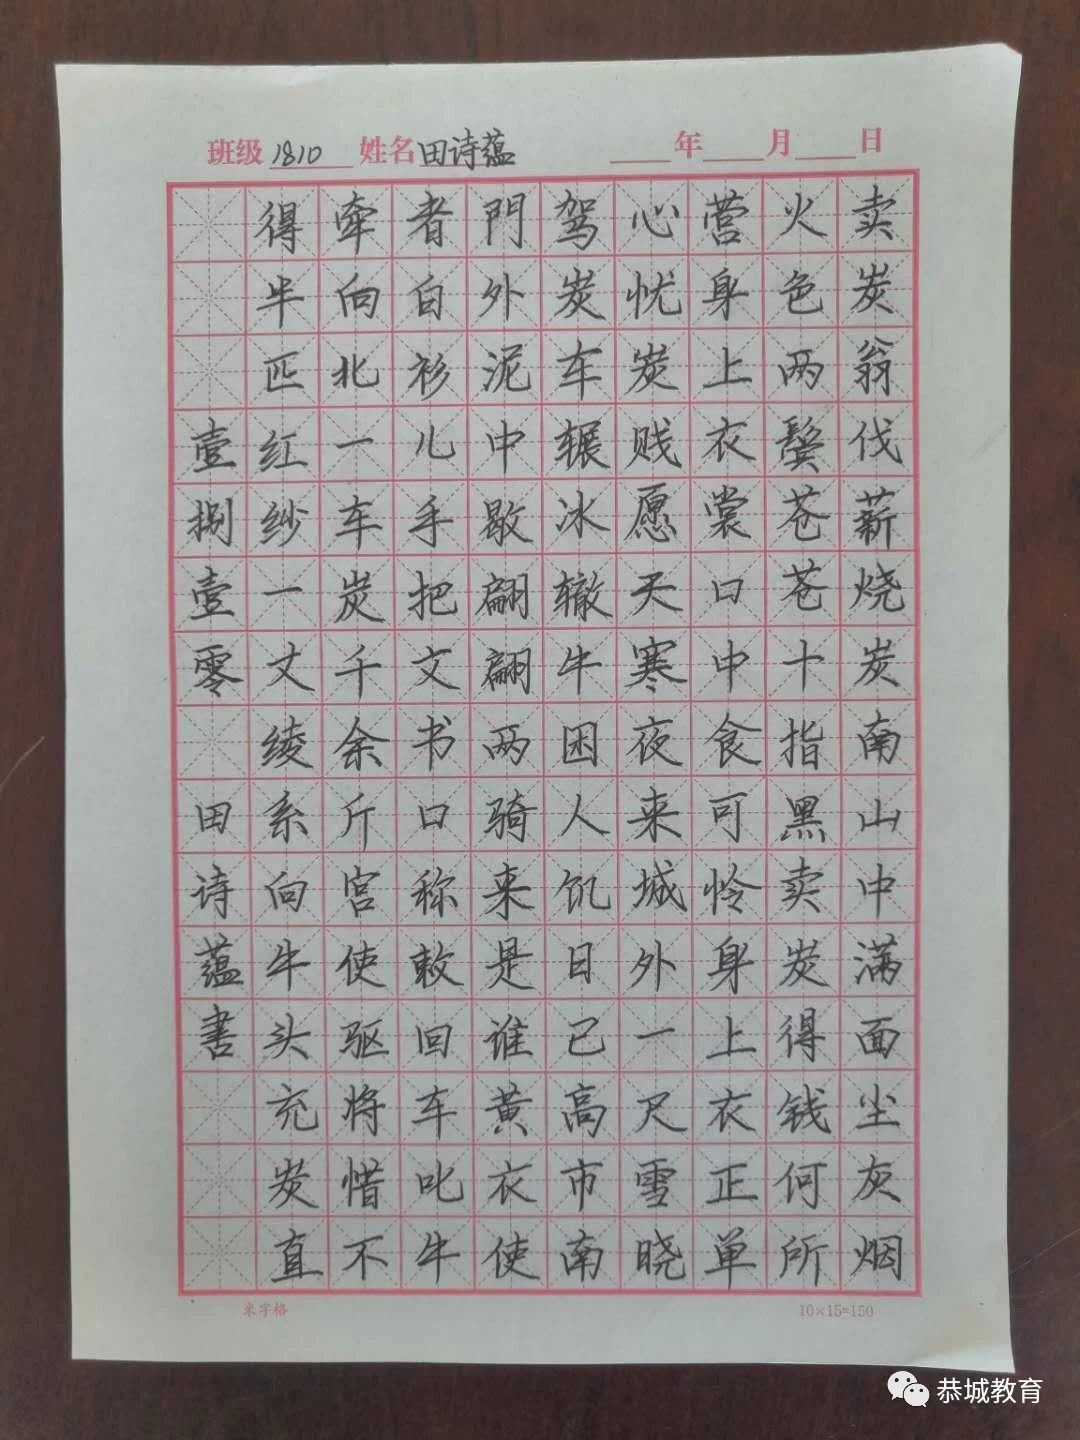 班级 1810 姓名 田诗蕴 年 月 日
卖炭翁伐薪烧炭南山中满面尘灰烟
火色两鬓苍苍十指黑卖炭得钱何所
营身上衣裳口中食可怜身上衣正单
心忧炭贱愿天寒夜来城外一尺雪晓
驾炭车辗冰辙牛困人饥日已高市南
門外泥中歇翩翩两骑来是谁黄衣使
者白衫儿手把文书口称敕回车叱牛
牵向北一车炭千余斤宫使驱将惜不
得半匹红纱一丈绫系向牛头充炭直
壹捌壹零 田诗蕴書
米字格 10×15=150
恭城教育